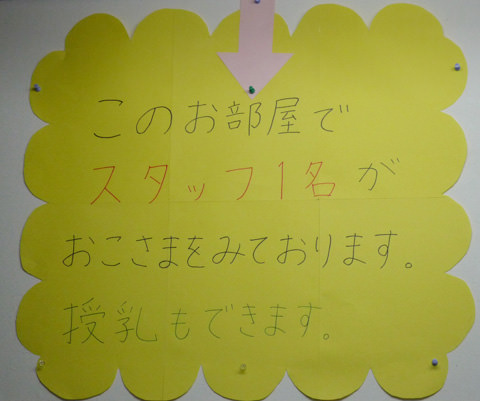 このお部屋で
スタッフ1名が
おこさまをみております。
授乳もできます。